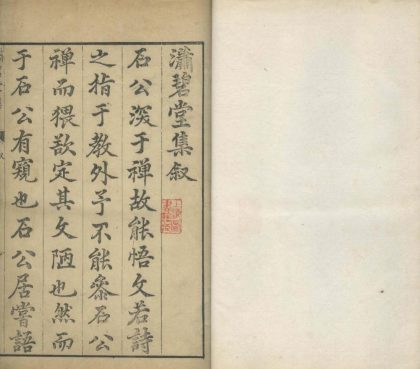 瀟碧堂集叙
石公深于禪故能悟文若詩
之指于教外予不能叅石公
禪而猥欲定其文陋也然而
于石公有窺也石公居嘗語